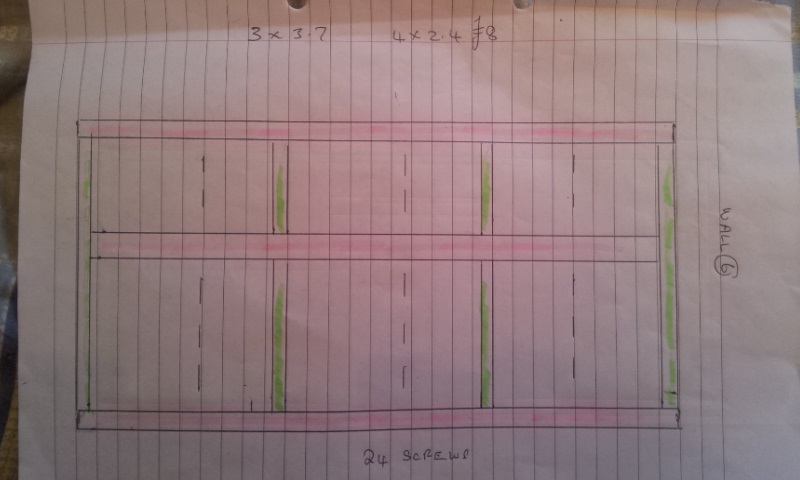 3 x 3.7 4 x 2.4 8
WALL 6
24 SCREWS